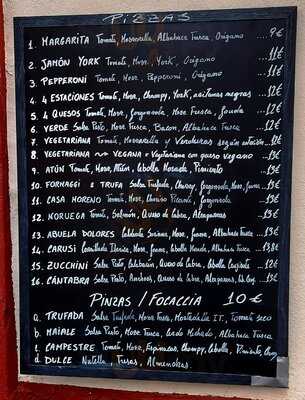 PIZZAS
1. MARGARITA Tomate, Mozzarella, Albahaca Fresca, Orégano ... 9€
2. JAMÓN YORK Tomate, Mozz, York, Orégano ... 11€
3. PEPPERONI Tomate, Mozz, Pepperoni, Orégano ... 11€
4. 4 ESTACIONES Tomate, Mozz, Champy, York, aceitunas negras ... 12€
5. 4 QUESOS Tomate, Mozz, Gorgonzola, Mozz Fresca, Gouda ... 12€
6. VERDE Salsa Pesto, Mozz Fresca, Bacon, Albahaca Fresca ... 12€
7. VEGETARIANA Tomate, Mozzarella y Verduras según estación ... 12€
8. VEGETARIANA VEGANA o Vegetariana con queso vegano ... 13€
9. ATÚN Tomate, Mozz, Atún, Cebolla Morada, Pimiento ... 13€
10. FORMAGGI E TRUFA Salsa Trufada, Champ, Gorgonzola, Mozz, ... 13€
11. CASA MORENO Tomate, Mozz, Chorizo Picante, Gorgonzola ... 13€
12. NORUEGA Tomate, Salmón, Queso de Cabra, Alcaparras ... 13€
13. ABUELA DOLORES Mozz, Albahaca Fresca ... 13€
14. CARUSI Ibérica, Mozz, Cebolla Morada, Tomate ... 13,8€
15. ZUCCHINI Salsa Pesto, Calabacín, Queso de Cabra, Cebolla ... 12€
16. CÁNTABRA Salsa Pesto, Anchoas, Queso de Cabra, Alcaparras, ... 13€
PINZAS / FOCACCIA 10€
a. TRUFADA Salsa Trufada, Mozz Fresca, Mortadella IT., Tomate seco
b. MAIALE Salsa Pesto, Mozz Fresca, Mechado, Albahaca Fresca
c. CAMPESTRE Tomate, Mozz, Espinacas, Champy, Cebolla, Pimiento,
d. DULCE Nutella, Fresas, Almendras.